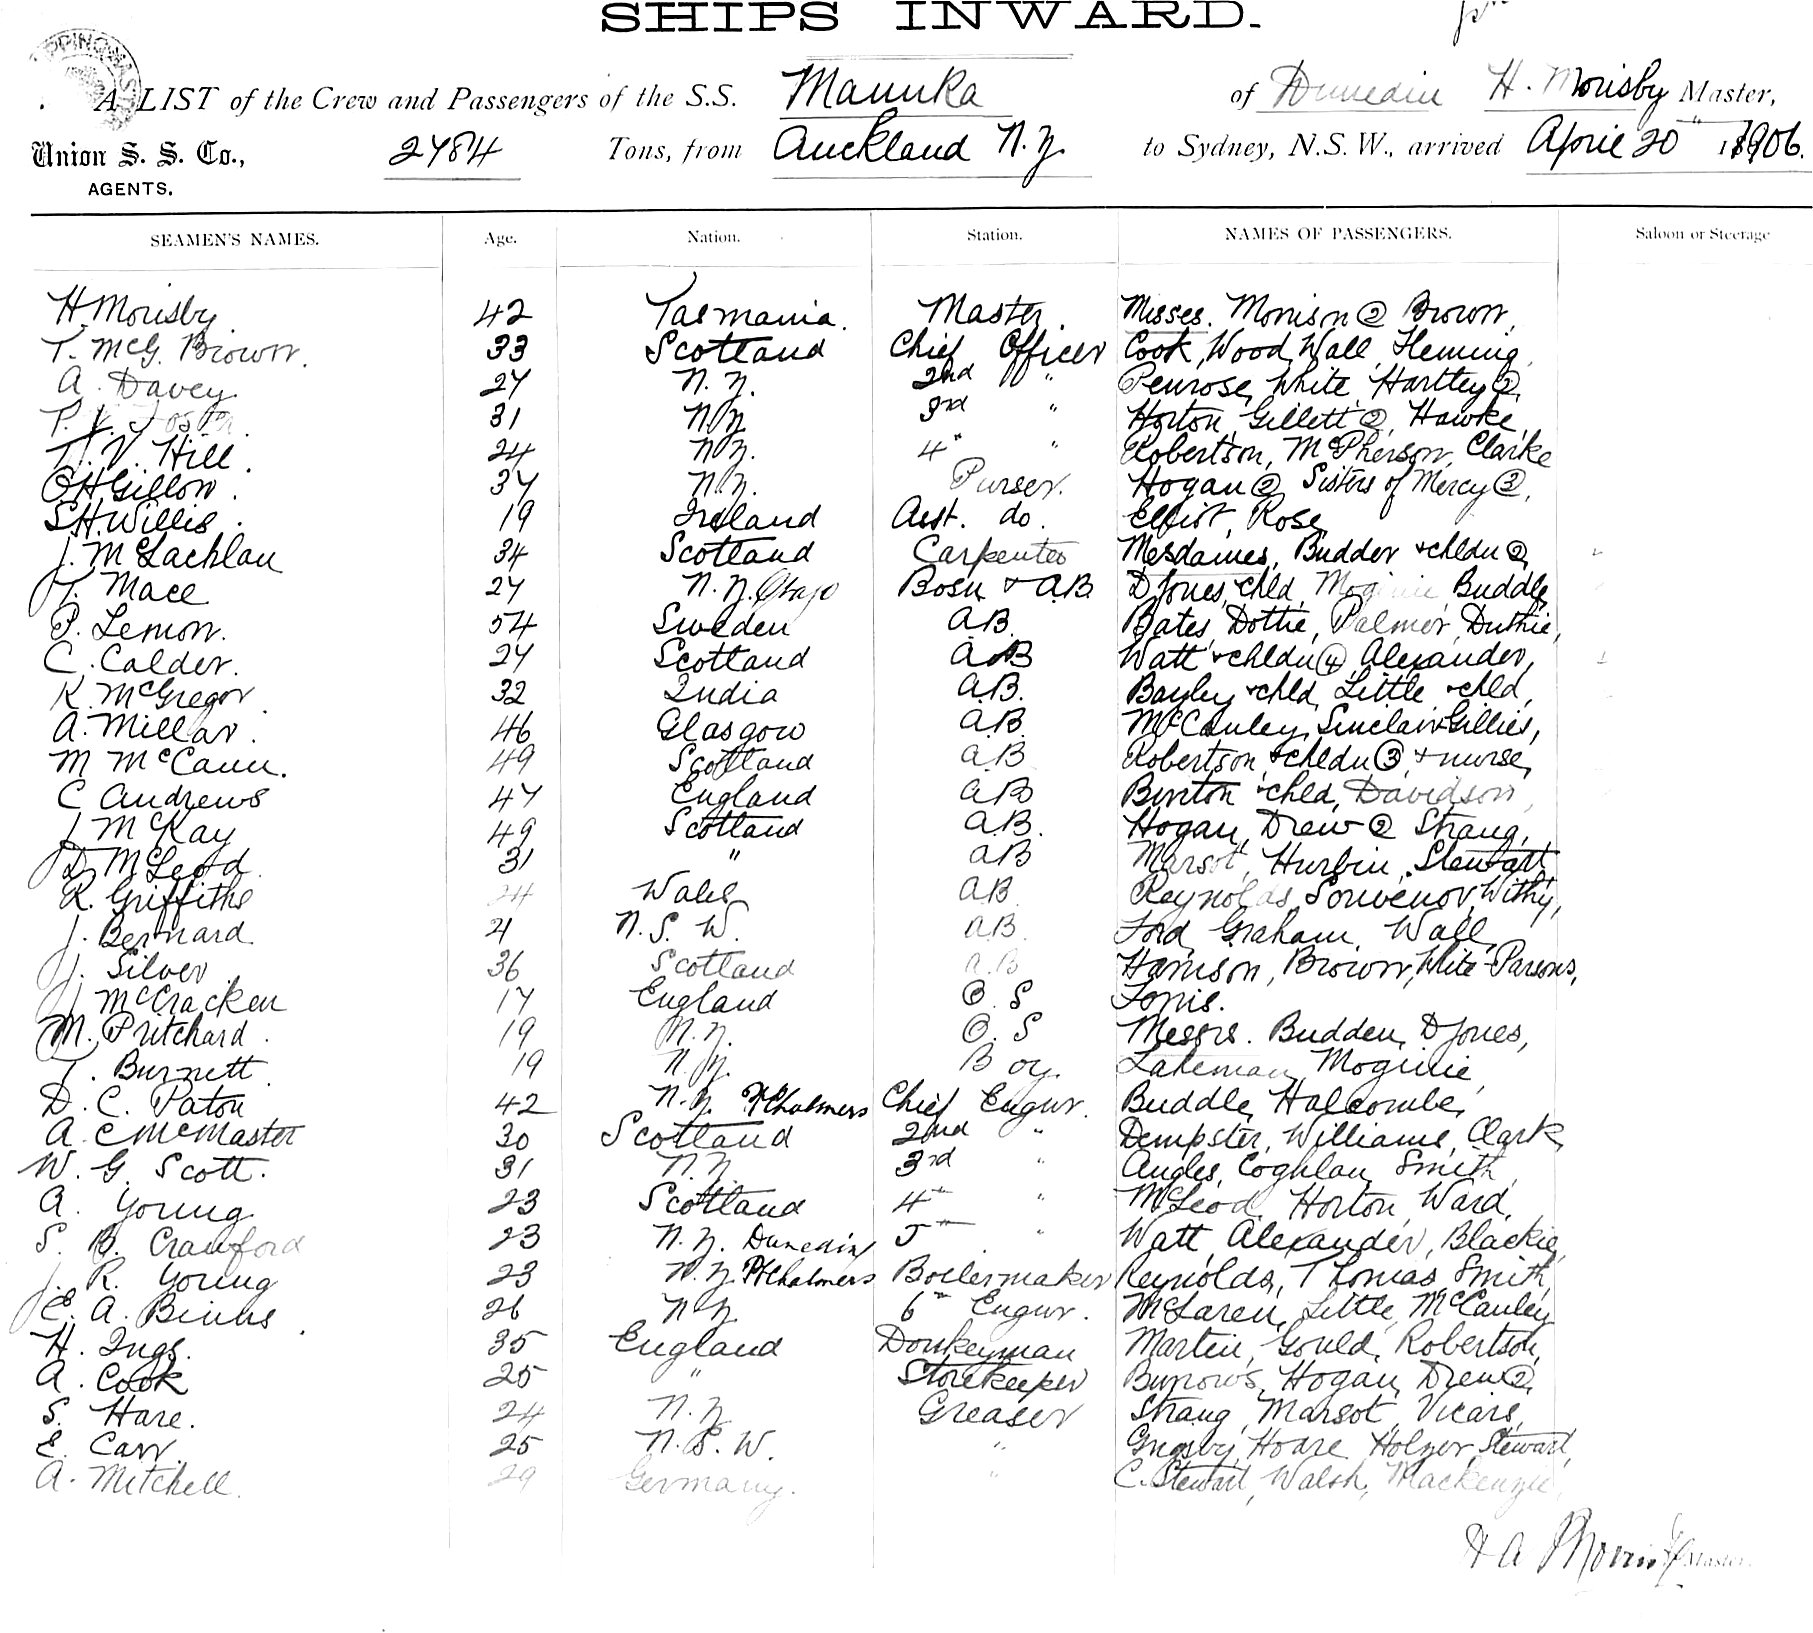 SHIPS INWARD.
A LIST of the Crew and Passengers of the S.S. Manuka of Dunedin H. Morisby Master,
Union S. S. Co., 2484 Tons, from Auckland N.Z. to Sydney, N.S.W., arrived April 20 1906.
AGENTS.
SEAMEN'S NAMES. Age. Nation. Station. NAMES OF PASSENGERS. Saloon or Steerage
H Morisby. 42 Tasmania. Master. Misses. Morrison (2) Brown,
T. McG. Brown. 33 Scotland Chief Officer Cook, Wood, Wall, Fleming,
A. Davey. 27 N.Z. 2nd " Penrose, White, Hartley (2),
31 N.Z. 3rd " Horton, Gillett (2), Hawke,
T. V. Hill. 24 N.Z. 4" " Robertson, McPherson, Clarke
O H Gillow. 37 N.Z. Purser. Hogan (2), Sisters of Mercy (3),
S H. Willis. 19 Ireland Asst. do. Elliot, Rose,
J. McLachlan 34 Scotland Carpenter Mesdames, Budder + chldn (2),
T. Mace 27 N.Z. Otago Bosn + A.B. D Jones, chld, Buddle,
P. Lemon. 54 Sweden A.B. Bates, Dottie, Palmer, Duthie,
C. Calder. 27 Scotland A.B Watt + chldn (4), Alexander,
K. McGregor. 32 India A.B. Bayley + chld, Little + chld,
A. Millar. 46 Glasgow A.B. McCauley, Sinclair + Gillies,
M McCann. 49 Scotland A.B Robertson, + chldn (3), + nurse,
C Andrews 47 England A.B + chld, Davidson,
J McKay 49 Scotland A.B. Hogan, Drew (2) Strang,
D. McLeod. 31 " A.B Margot, Hurbin, Stewart,
R. Griffiths 24 Wales A.B Reynolds, Souvenor, Withy,
J. Bernard. 21 N. S. W. A.B. Ford, Graham, Wall,
J. Silver 36 Scotland A.B Harrison, Brown, White-Parsons,
J McCracken 17 England O. S
M. Pritchard. 19 N.Z. O. S Messrs. Budden, D Jones,
T. Burnett 19 N.Z. Boy. Lakeman, Mogine,
D. C. Paton 42 N.Z. Pt Chalmers Chief Engnr. Buddle, Halcombe,
A. C McMaster 30 Scotland 2nd " Dempster, Williams, Clark,
W. G Scott. 31 N.Z. 3rd " Angles, Coghlan, Smith,
A. Young 23 Scotland 4" " McLeod, Horton, Ward,
S. B. Crawford 23 N.Z. Dunedin 5" " Watt, Alexander, Blackie,
J. R. Young 23 N.Z. Pt Chalmers Boilermaker Reynolds, Thomas, Smith,
E. A. Binns 26 N.Z 6" Engnr. McLaren, Little, McCauley
H. Ings. 35 England Donkeyman Martin, Gould, Robertson,
A. Cook 25 " Storekeeper Burrows, Hogan, Drew (2),
S. Hare. 24 N.Z Greaser Strang, Margot, Vicars,
E. Carr. 25 N.S.W. " Grigsby, Hoare, Holger, Stewart,
A. Mitchell. 29 Germany. " C. Stewart, Walsh, Mackenzie,
H A Morrisby Master.